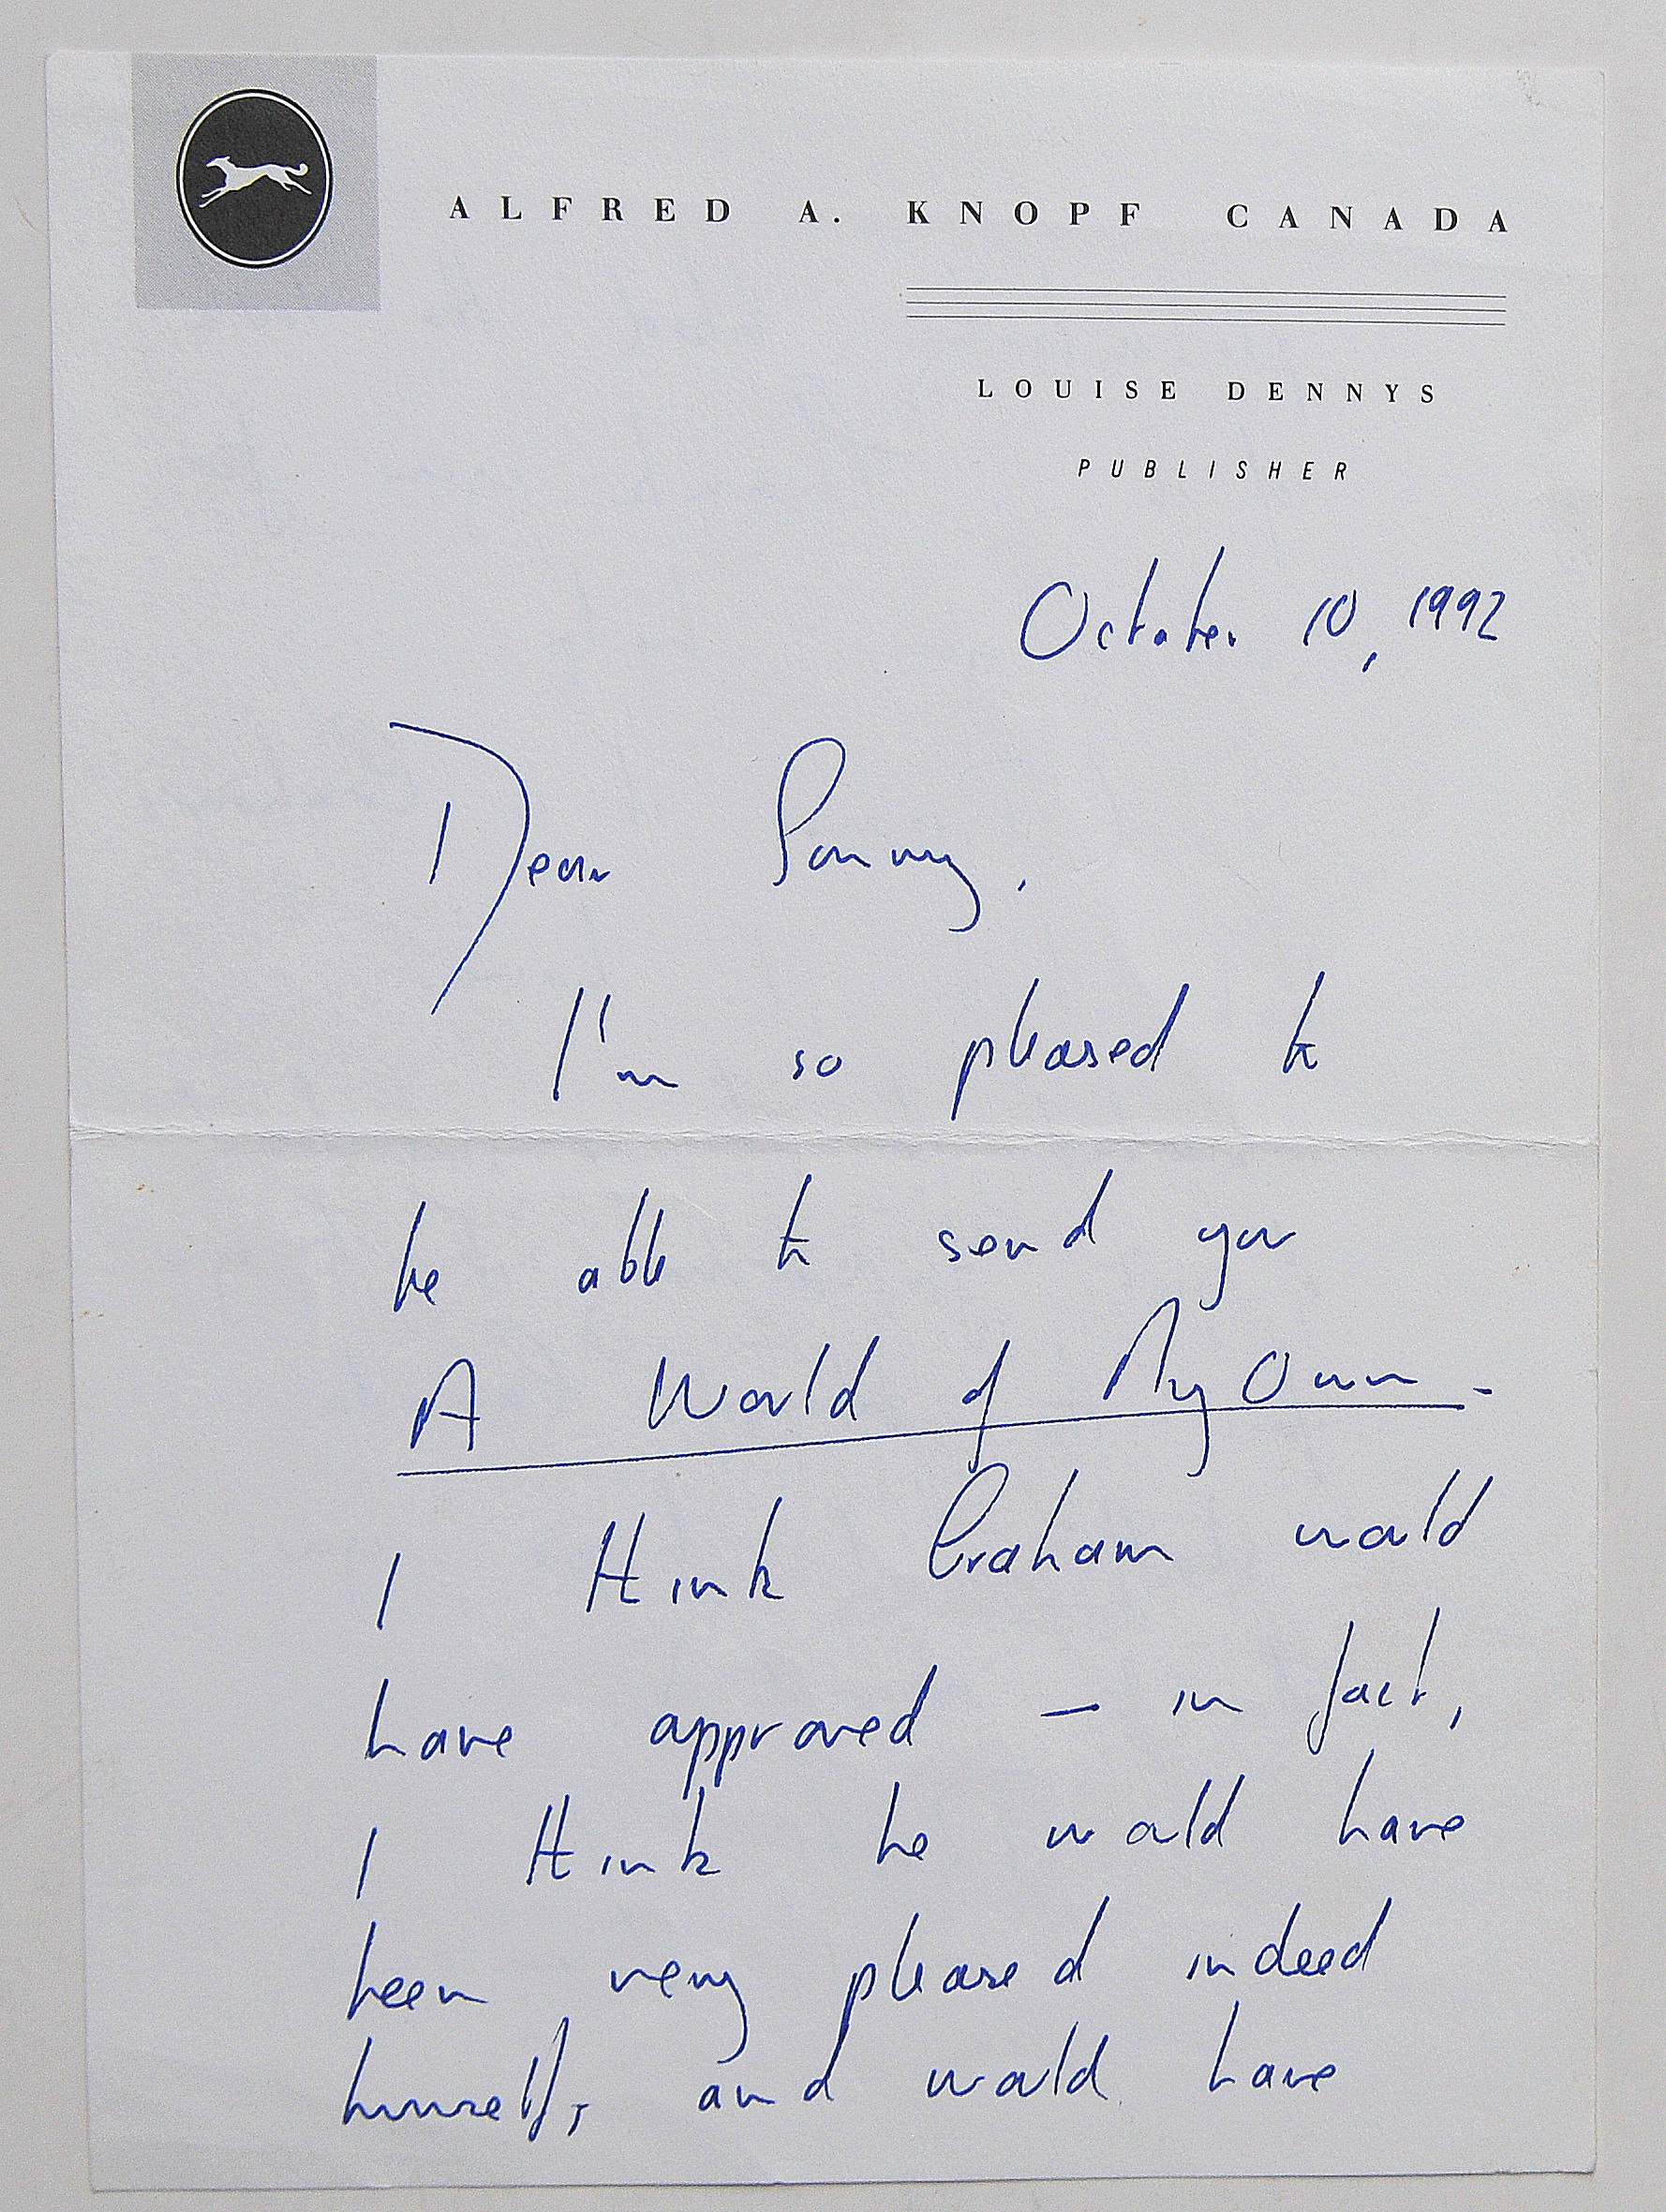 ALFRED A. KNOPF CANADA
LOUISE DENNYS
PUBLISHER
October 10, 1992
Dear Sonny,
I'm so pleased to
be able to send you
A World of My Own -
I think Graham would
have approved — in fact,
I think he would have
been very pleased indeed
himself, and would have